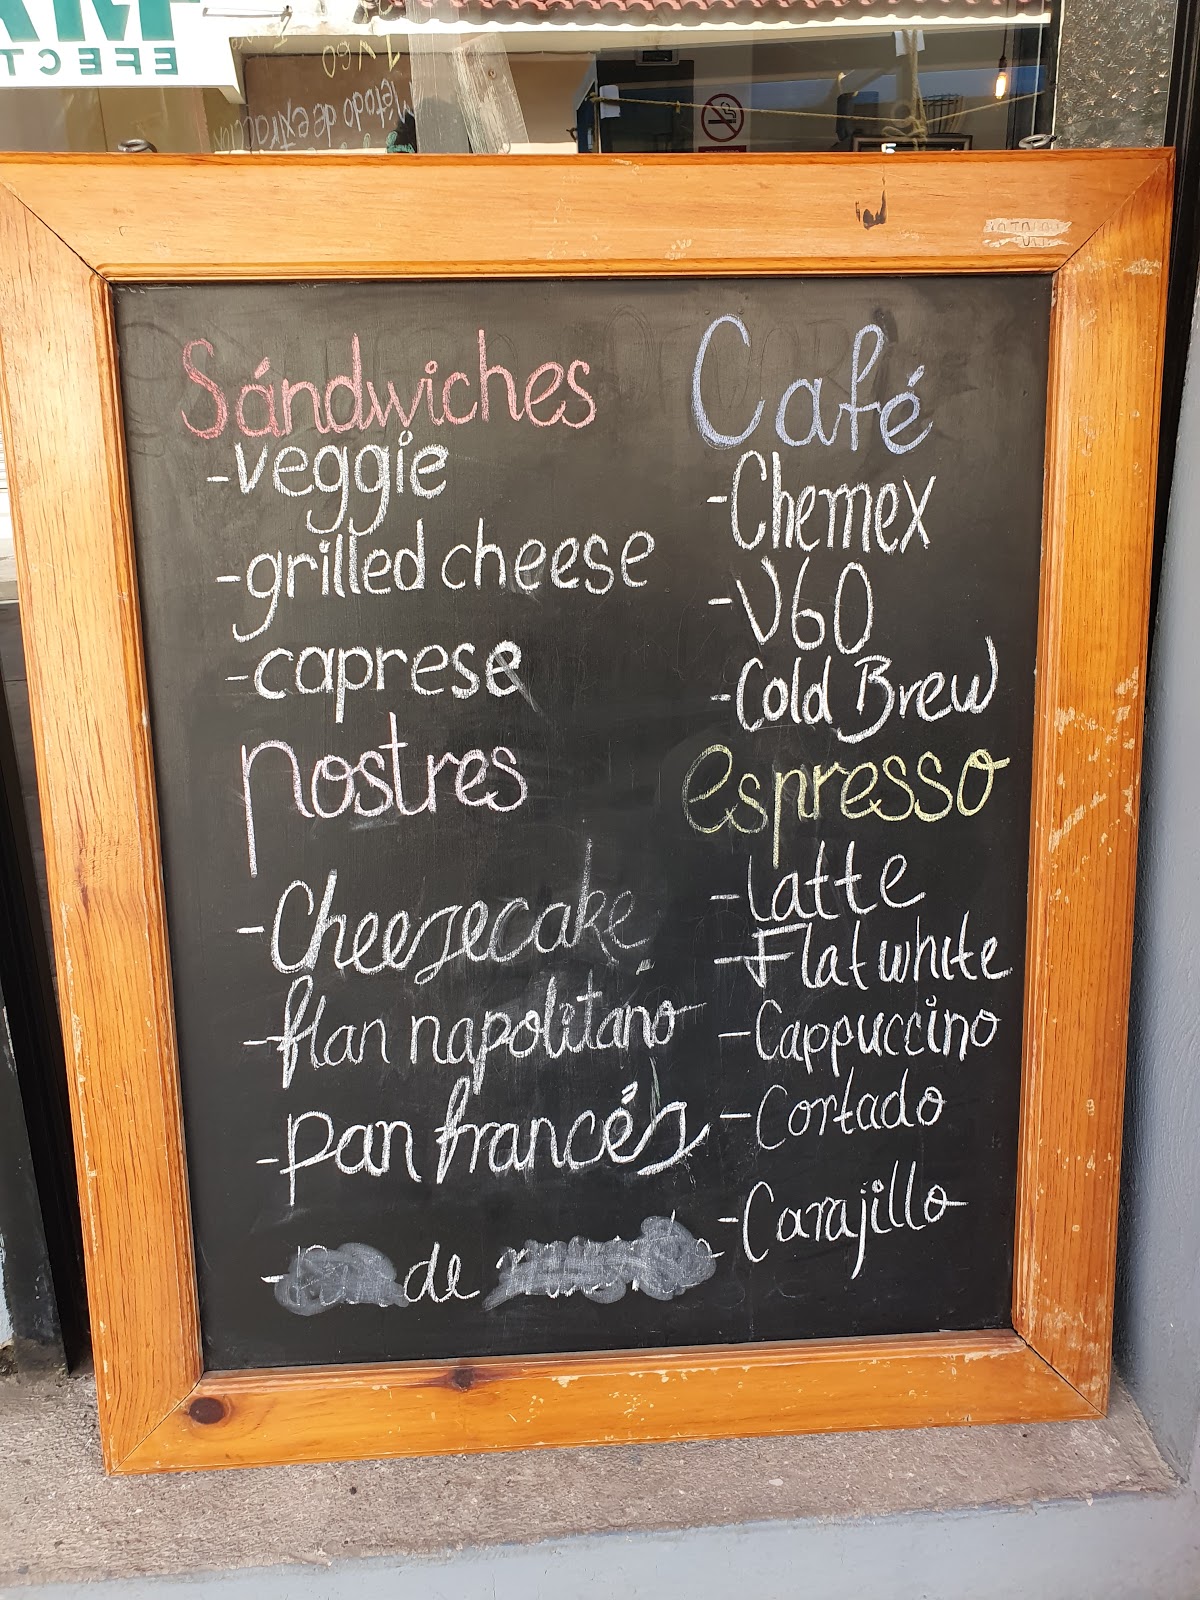 EFECT
Metodo de extracción
1 V60
Sándwiches
-veggie
-grilled cheese
-caprese
Postres
-Cheesecake
-flan napolitano
-pan francés
- de
Café
-Chemex
-V60
-Cold Brew
espresso
-Latte
-Flat white
-Cappuccino
-Cortado
-Carajillo